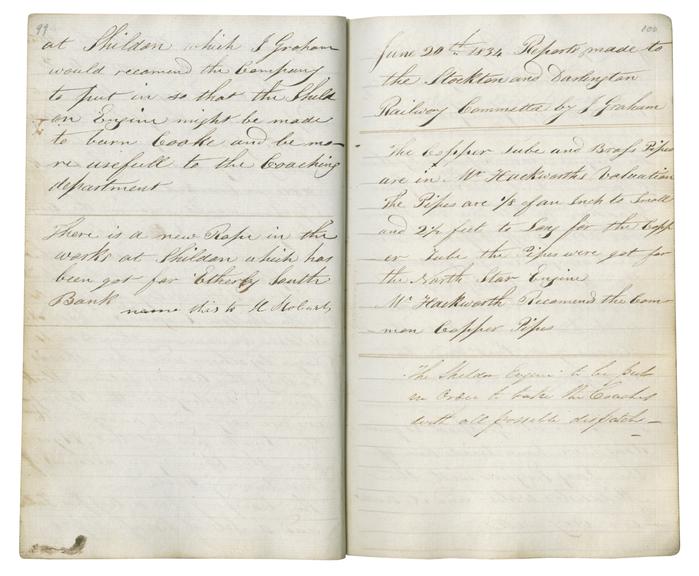 99
at Shildon which J Graham
would recomend the Company
to put in so that the Shild
on Engine might be made
to burn Cooke and be mo-
re usefull to the Coaching
department
There is a new Rope in the
works at Shildon which has
been got for Etherly South
Bank name this to H Stobart
100
June 20th 1834 Reports made to
the Stockton and Darlington
Railway Committee by J Graham
The Copper Tube and Brass Pipes
are in Mr Hackworths Valuation
The Pipes are 1/8 of an Inch to Small
and 2 1/2 feet to Long for the Copp
er Tube the Pipes were got for
the North Star Engine
Mr Hackworth Recomend the Com
mon Copper Pipes
The Shildon Engine to be put
in Order to take the Coaches
with all possible dispatch